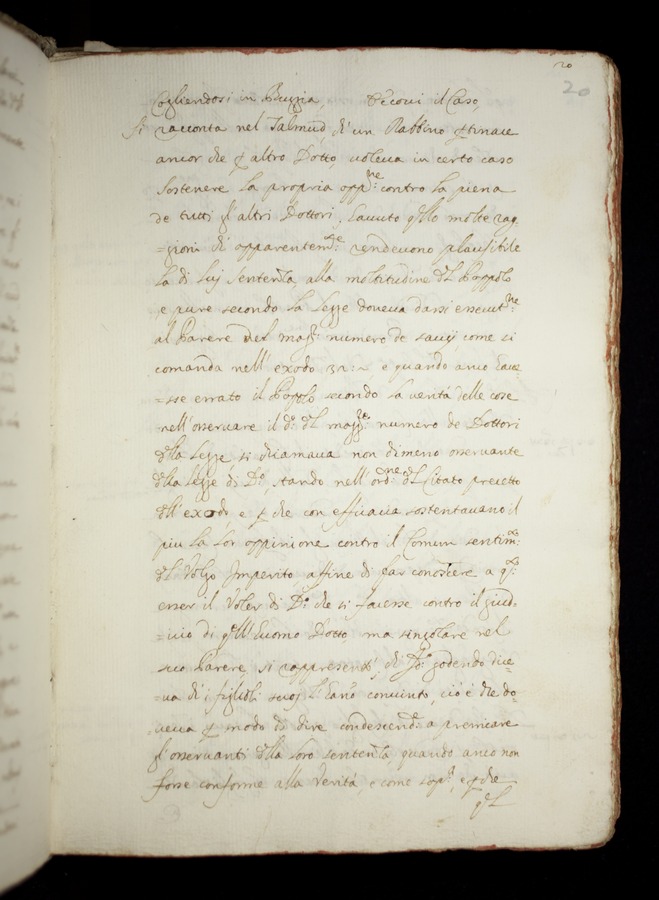 20
20
Cogliendosi in Buggia, Eccovi il Caso
Si racconta nel Talmud, di un Rabbino ptinace
ancor che p altro Dotto, voleva in certo caso
sostenere la propria opp:ne contro la piena
de tutti gl'altri Dottori, havuto qllo molte rag-
=gioni di apparentem:te rendevono plausibile
la di lui sentenza, alla moltitudine dl Poppolo
e pure secondo la legge doveva darsi essecut:ne
al Parere del magg:r numero de savij, come si
comanda nell'exodo e quando anco have
=sse errato il Popolo secondo la verità delle cose
nell'osservare il d:o dl magg:re numero de Dottori
dlla legge, si chiamava non dimeno osservante
dlla legge di D:o, stando nell'ord:ne dl Citato precetto
dll'exodo e p che con efficacia sostentavano il
piu la lor oppinione contro il Comun sentim:to
dl Volgo Imperito, affine di far conoscere a
esser il Voler di D:o che si facesse contro il giud-
=icio di qll'huomo Dotto, ma singolare nel
suo Parere, si rappresentò, di godendo dice
=va di i figlioli suoj l'hanno convinto, ciò è che do-
=veva p modo di dire condescend: a premiare
gl'osservanti dlla loro sentenza, quando anco non
fosse conforme alla verità, e come sop:a, e p che